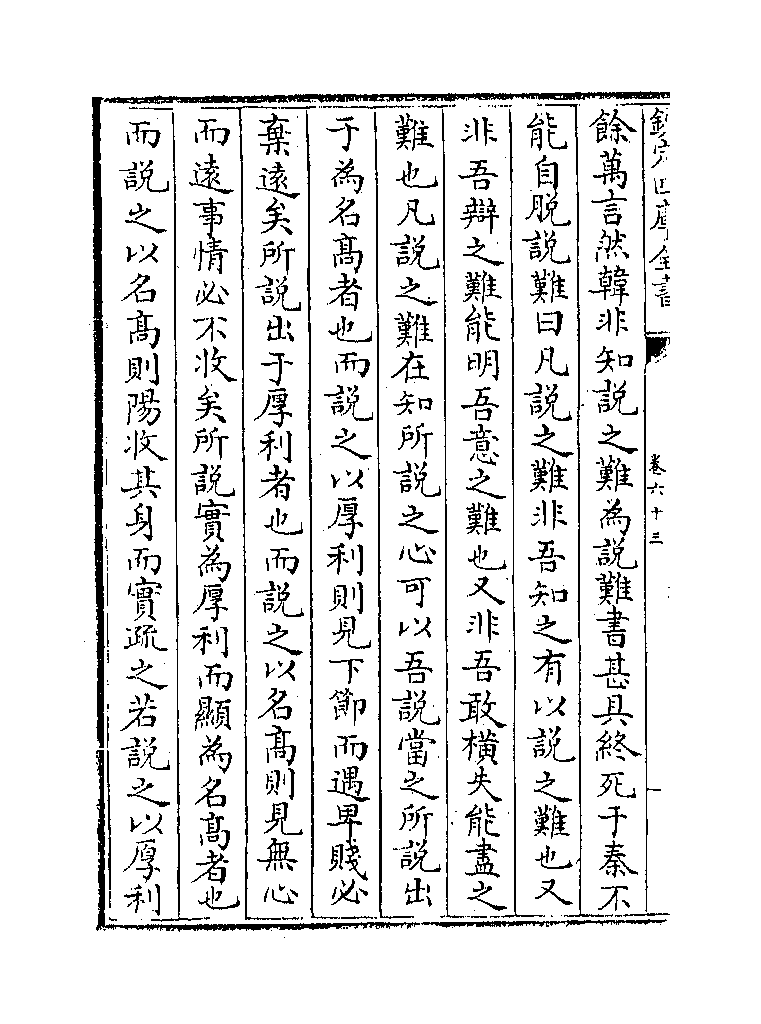 欽定四庫全書
卷六十三
餘萬言然韓非知說之難為說難書甚具終死于秦不
能自脫說難曰凡說之難非吾知之有以說之難也又
非吾辯之難能明吾意之難也又非吾敢橫失能盡之
難也凡說之難在知所說之心可以吾說當之所說出
于為名髙者也而說之以厚利則見下節而遇卑賤必
棄遠矣所說出于厚利者也而說之以名髙則見無心
而遠事情必不收矣所說實為厚利而顯為名髙者也
而說之以名髙則陽收其身而實疏之若說之以厚利